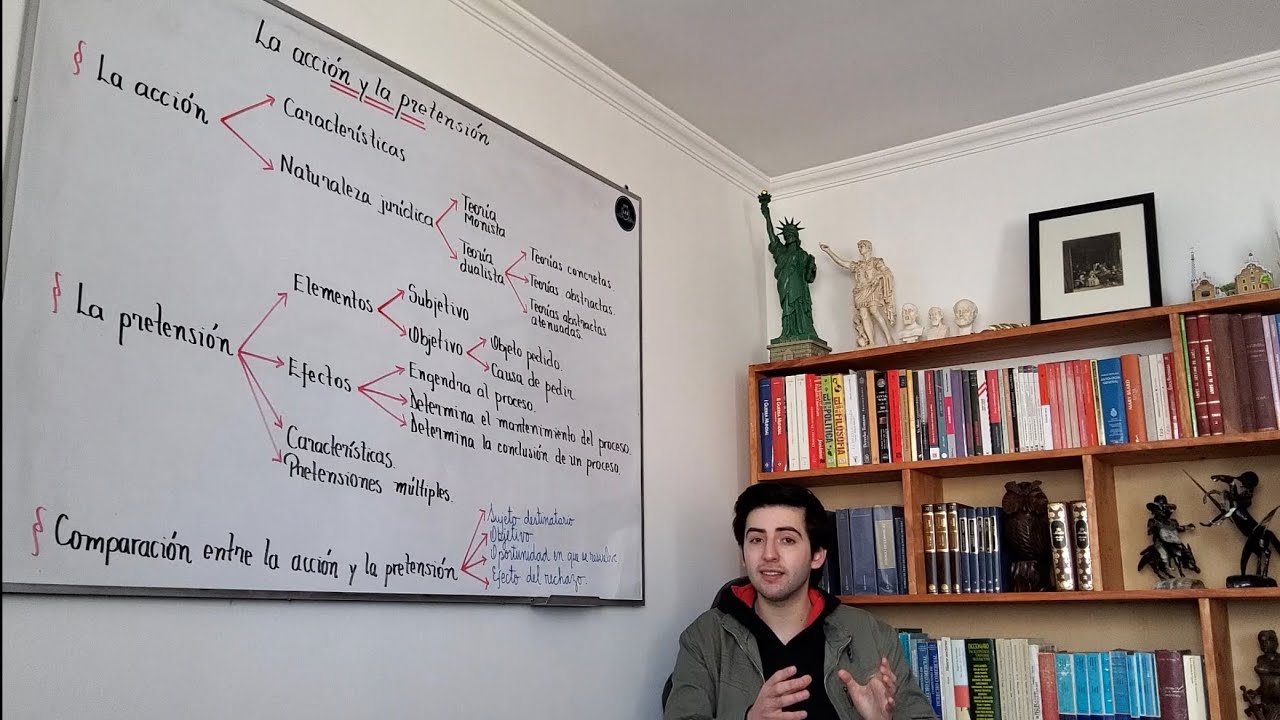 La acción y la pretensión
§ La acción
Características
Naturaleza jurídica
Teoría
Monista
Teoría
dualista
Teorías concretas
Teorías abstractas.
Teorías abstractas
atenuadas.
§ La pretensión
Elementos
Subjetivo
Objetivo
Objeto pedido.
Causa de pedir
Efectos
Engendra al proceso.
Determina el mantenimiento del proceso.
Determina la conclusión de un proceso
Características.
Pretensiones múltiples.
§ Comparación entre la acción y la pretensión
Sujeto destinatario
Objetivo
Oportunidad en que se resuelve
Efecto del rechazo.
POLITICA
FILOSOFIA
DICCIONARIO